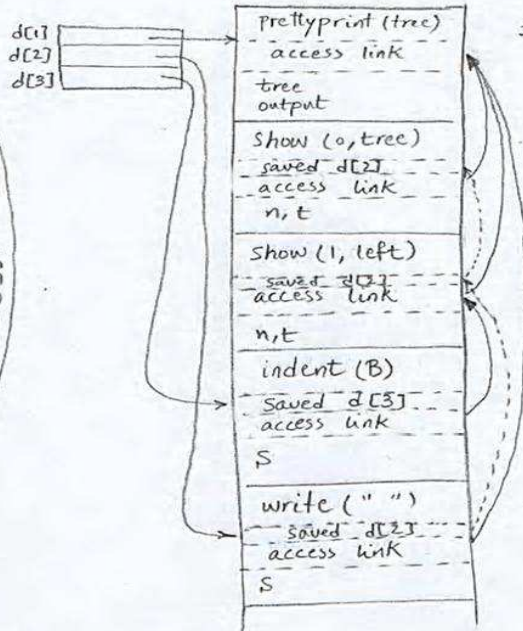 d[1]
d[2]
d[3]
prettyprint (tree)
access link
tree
output
show (0, tree)
saved d[2]
access link
n, t
show (1, left)
saved d[2]
access link
n,t
indent (B)
saved d[3]
access link
S
write (" ")
saved d[2]
access link
S